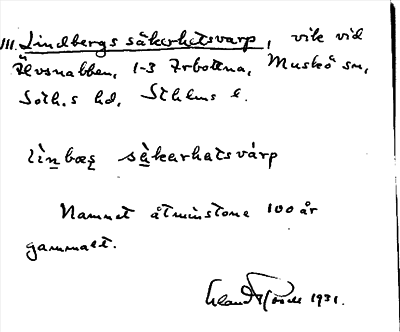 III. Lindbergs säkerhetsvarp, vik vid
Älvsnabben, 1-3 Arbottna, Muskö sn,
Soth.s hd, Sthlms l.
lìn̲bæȩ sä̲kerhatsvárp
Namnet åtminstone 100 år
gammalt.
1931.